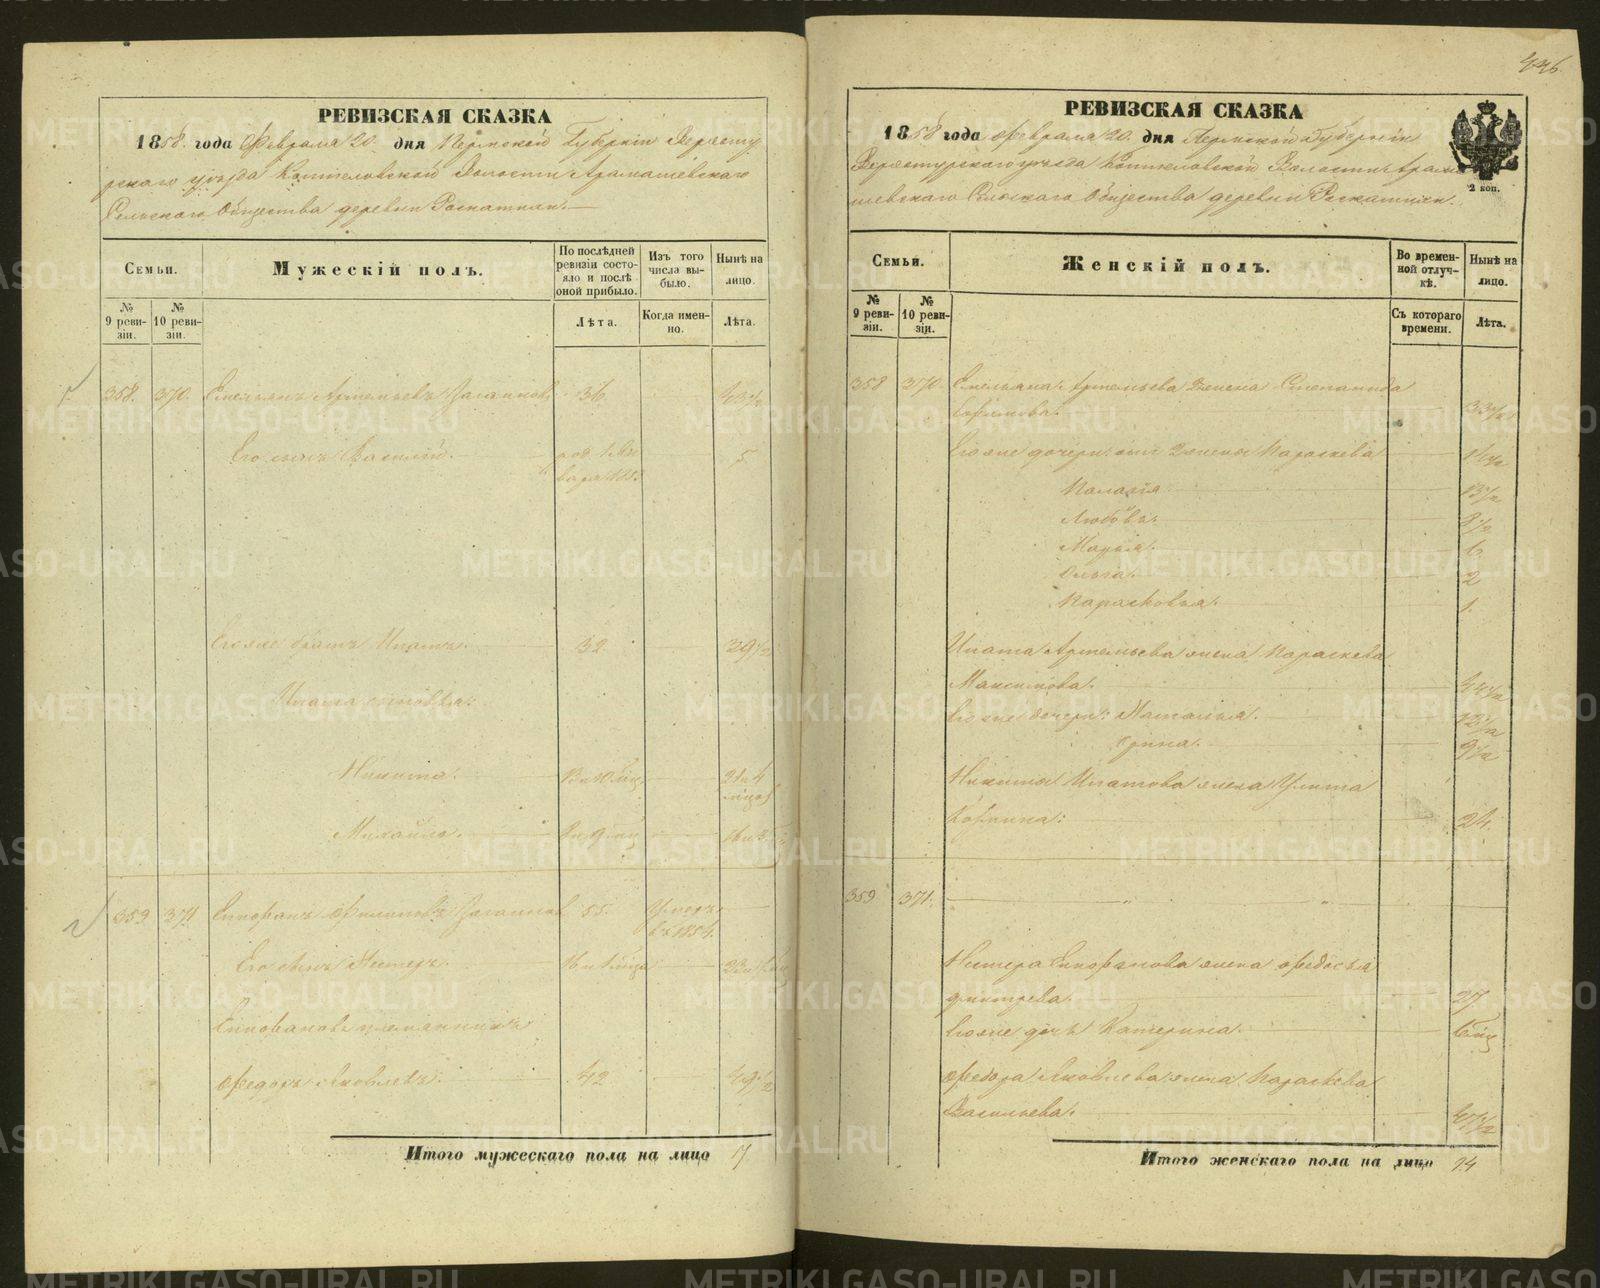 446
РЕВИЗСКАЯ СКАЗКА
1858 года Февраля 20 дня Пермской Губернiи Верхоту
рскаго уѣзда Коптеловской Волости Арамашевскаго
Сельскаго Общества деревни Раскатихи
Семьи.
Мужескiй полъ.
По послѣдней ревизiи состояло и послѣ оной прибыло.
Изъ того числа выбыло.
Нынѣ на лицо.
№ 9 ревизiи.
№ 10 ревизiи.
Лѣта.
Когда именно.
Лѣта.
358. 370. Емельянъ Артемьевъ 36
Его сынъ Василiй. род. 1 Ян 5
варя
Егоже братъ Ипатъ. 32
Ипата сыновья:
Никита.
Михайло.
359 371 Епифанъ Филиповъ 55. Умеръ
въ 1854.
Его сынъ Нестеръ.
Епифановъ племянникъ
Федоръ Яковлевъ. 42 49 1/2
Итого мужескаго пола на лицо 7
РЕВИЗСКАЯ СКАЗКА
1858 года Февраля 20 дня Пермской Губернiи
Верхотурскаго уѣзда Коптеловской Волости Арама
шевскаго Сельскаго Общества деревни Раскатихи.
2 коп.
Семьи.
Женскiй полъ.
Во временной отлучкѣ.
Нынѣ на лицо.
№ 9 ревизiи.
№ 10 ревизiи.
Съ котораго времени.
Лѣта.
358 370. Емельяна Артемьева жена Степанида
Его же дочери: Параскева
Палагiя
Любовь. 8 1/2
Марья. 6
Ольга. 2
Парасковья. 1.
Ипата Артемьева жена Параскева
Максимова.
Его же дочери: Наталья. 12 1/2
Ирина. 9 1/2
Никиты Ипатова жена Улита
24.
359 371.
Нестера Епифанова жена Федосья
Дмитрева. 27
Егоже дочь Катерина. 6 мц
Федора Яковлева жена Параскева
Васильева. 47 1/2
Итого женскаго пола на лицо 14
METRIKI.GASO-URAL.RU